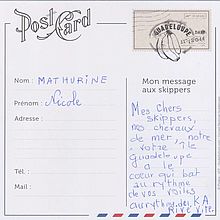 Post Card
GUADELOUPE
2014
Nom : MATHURINE
Prénom : Nicole
Adresse :
Tél. :
Mail :
Mon message
aux skippers
Mes Chers
skippers,
nos chevaux
de mer, notre
, votre île
Guadeloupe
a le
cœur qui bat
au rythme
de vos voiles
au rythme des KA
Rive Vite.